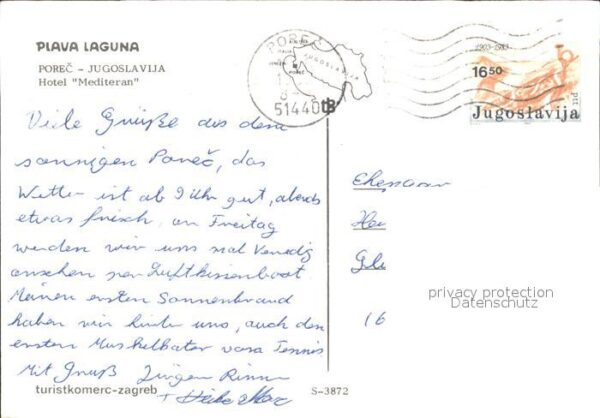 PLAVA LAGUNA
POREČ – JUGOSLAVIJA
Hotel "Mediteran"
POREČ
JUGOSLAVIJA
POREČ
51440
1903-1983
16 50
Jugoslavija
ptt
Viele Grüße aus dem
sonnigen Poreč, das
Wetter ist ab 9 Uhr gut, abends
etwas frisch, am Freitag
werden wir uns mal Venedig
ansehen per Luftkissenboot.
Meinen ersten Sonnenbrand
haben wir hinter uns, auch den
ersten Muskelkater vom Tennis
Mit Gruß Jürgen
+
Ehepaar
16
privacy protection
Datenschutz
turistkomerc-zagreb
S-3872